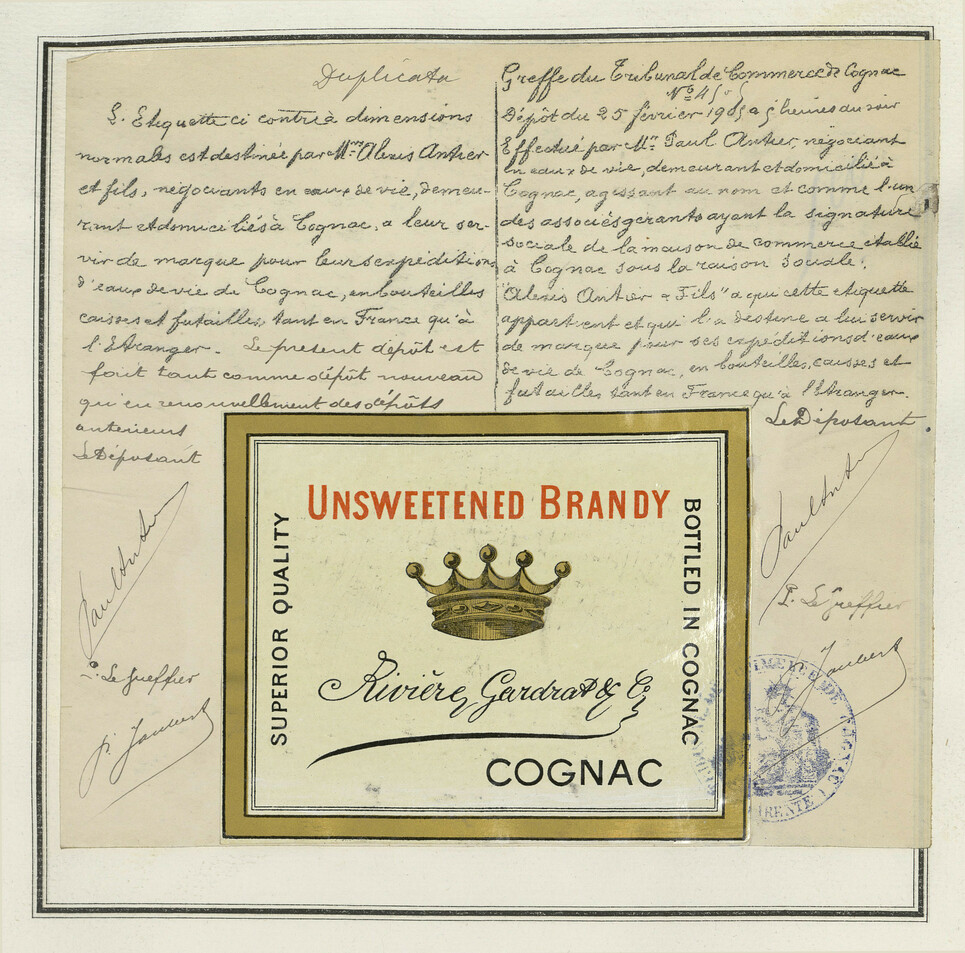 Duplicata
L'Etiquette ci contre à dimensions
normales est destinée par Mrs Alexis Antier
et fils, négociants en eaux de vie, demeu-
rant et domiciliés à Cognac, a leur ser-
vir de marque pour leurs expéditions
d'eaux de vie de Cognac, en bouteilles
caisses et futailles, tant en France qu'à
l'Etranger. Le présent dépôt est
fait tant comme dépôt nouveau
qu'en renouvellement des dépôts
anterieurs
Le Déposant
Paul Antier
P. Le Greffier
P. Joubert
Greffe du Tribunal de Commerce de Cognac
No
Dépôt du 25 février à 5 heures du soir
Effectué par Mr Paul Antier, négociant
en eaux de vie, demeurant et domicilié à
Cognac, agissant au nom et comme l'un
des associés gérants ayant la signature
sociale de la maison de commerce établie
à Cognac sous la raison sociale:
"Alexis Antier & Fils" a qui cette etiquette
appartient et qui l'a destine a lui servir
de marque pour ses expeditions d'eaux
de vie de Cognac, en bouteilles, caisses et
futailles tant en France qu'à l'Etranger.
Le Déposant
Paul Antier
P. Le Greffier
Joubert
UNSWEETENED BRANDY
SUPERIOR QUALITY
BOTTLED IN COGNAC
Rivière, Gardrat & Co
COGNAC
DE COGNAC